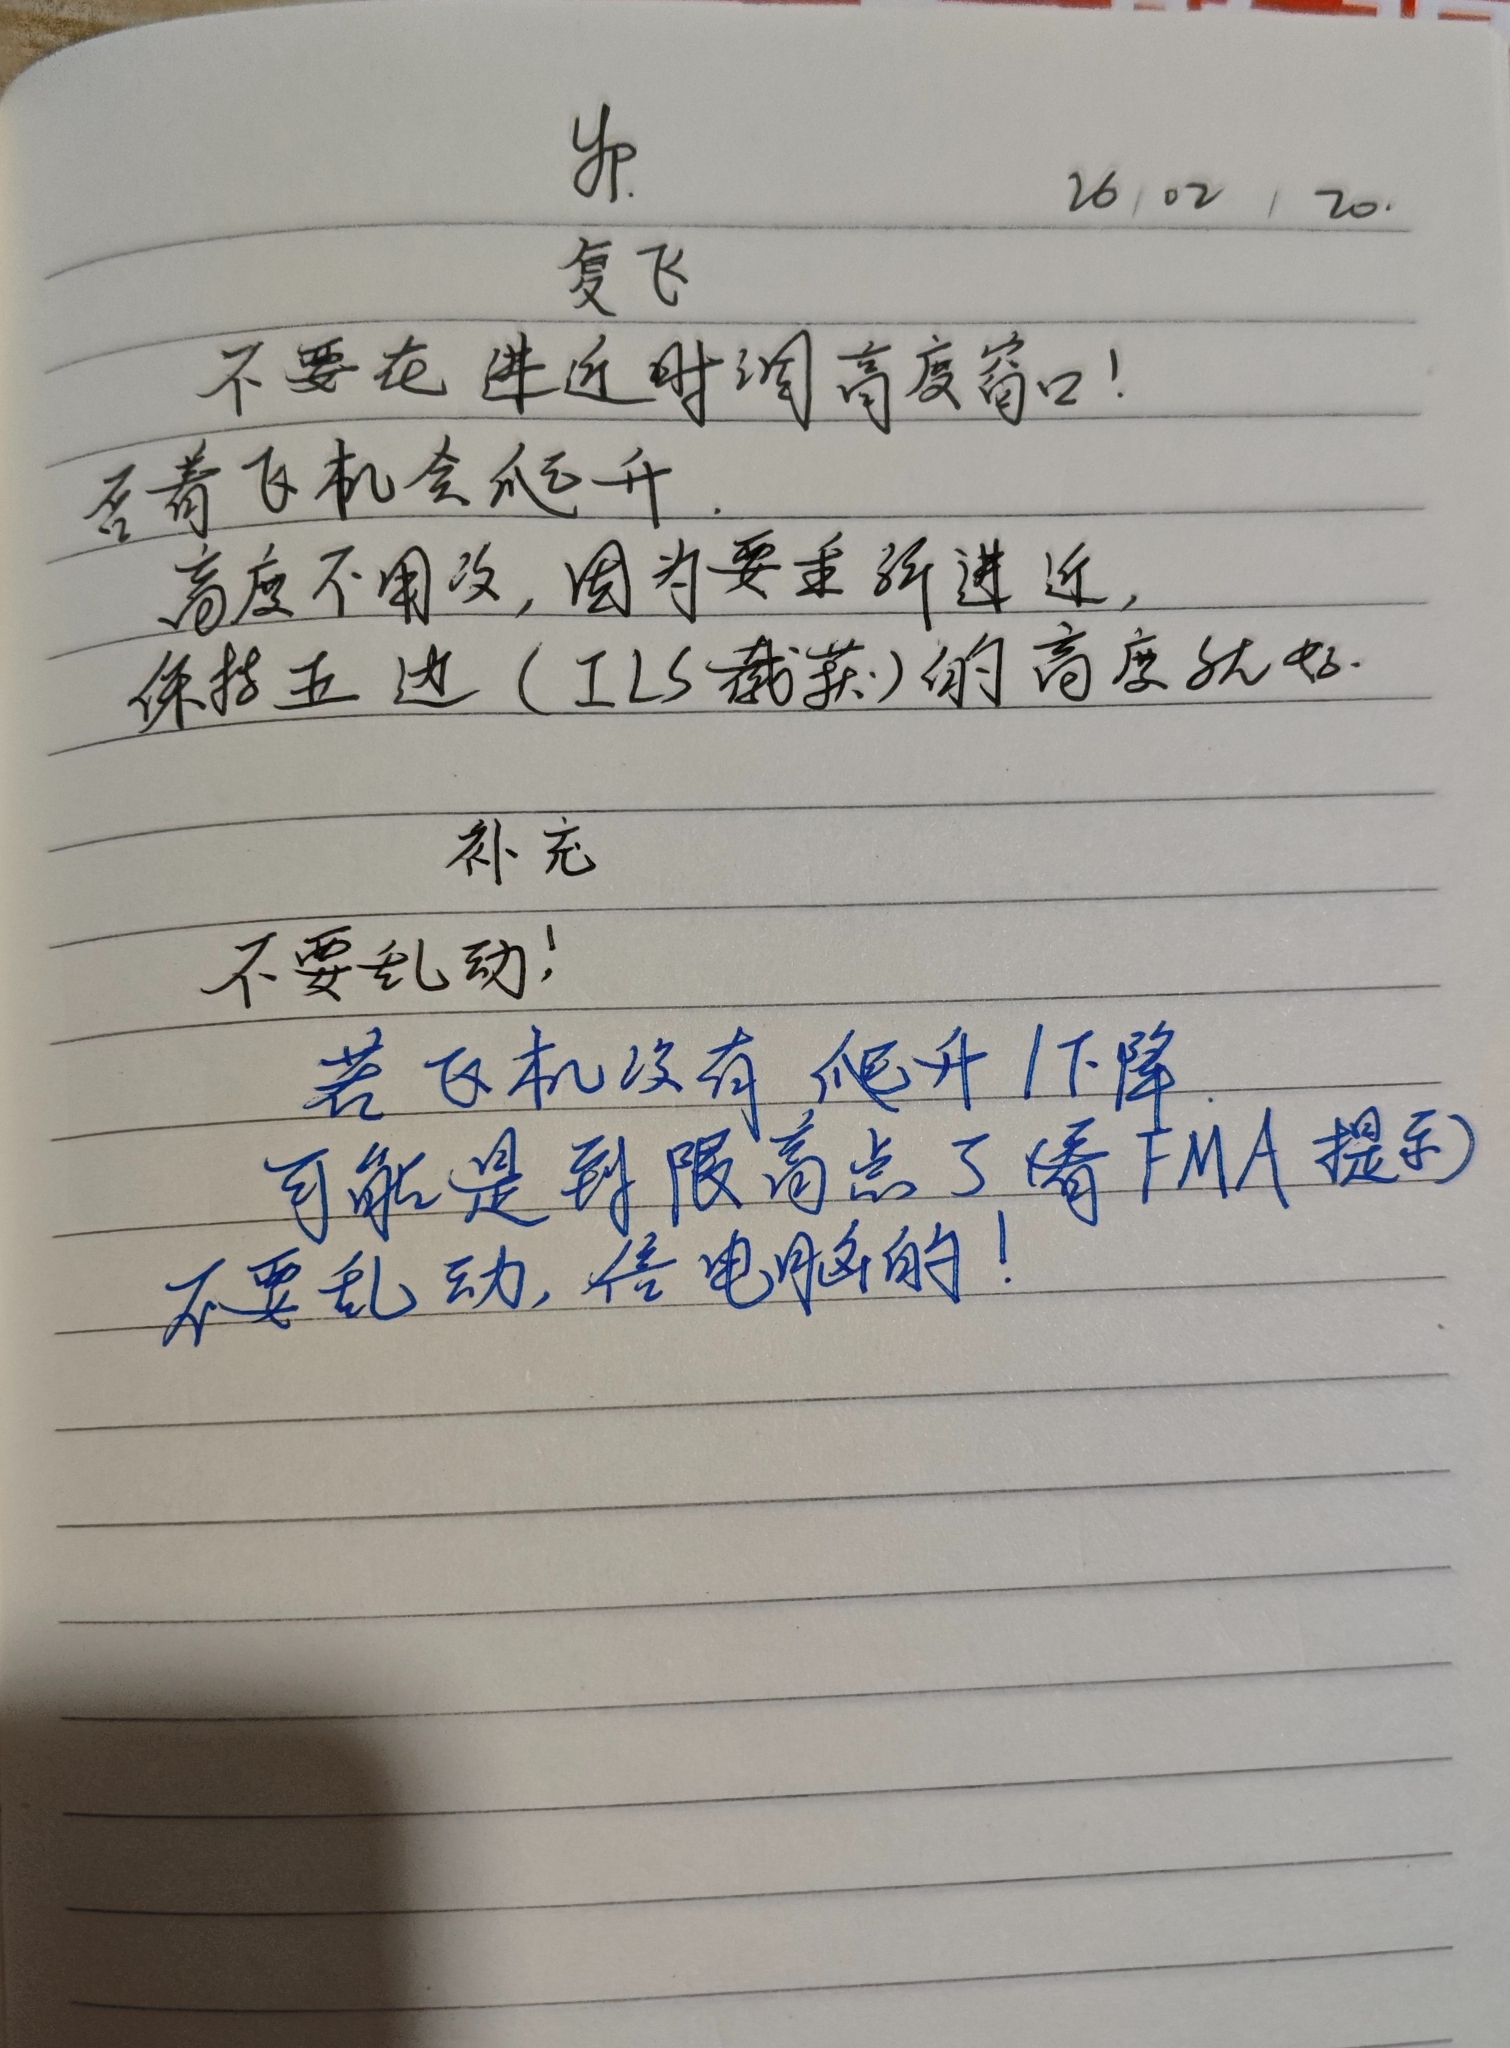 26/02/20.
复飞
不要在进近时调高度窗口!
否着飞机会爬升.
高度不用改,因为要重新进近,
保持五边(ILS截获)的高度就好.
补充
不要乱动!
若飞机没有爬升/下降.
可能是到限高点了(看FMA提示)
不要乱动,信电脑的!